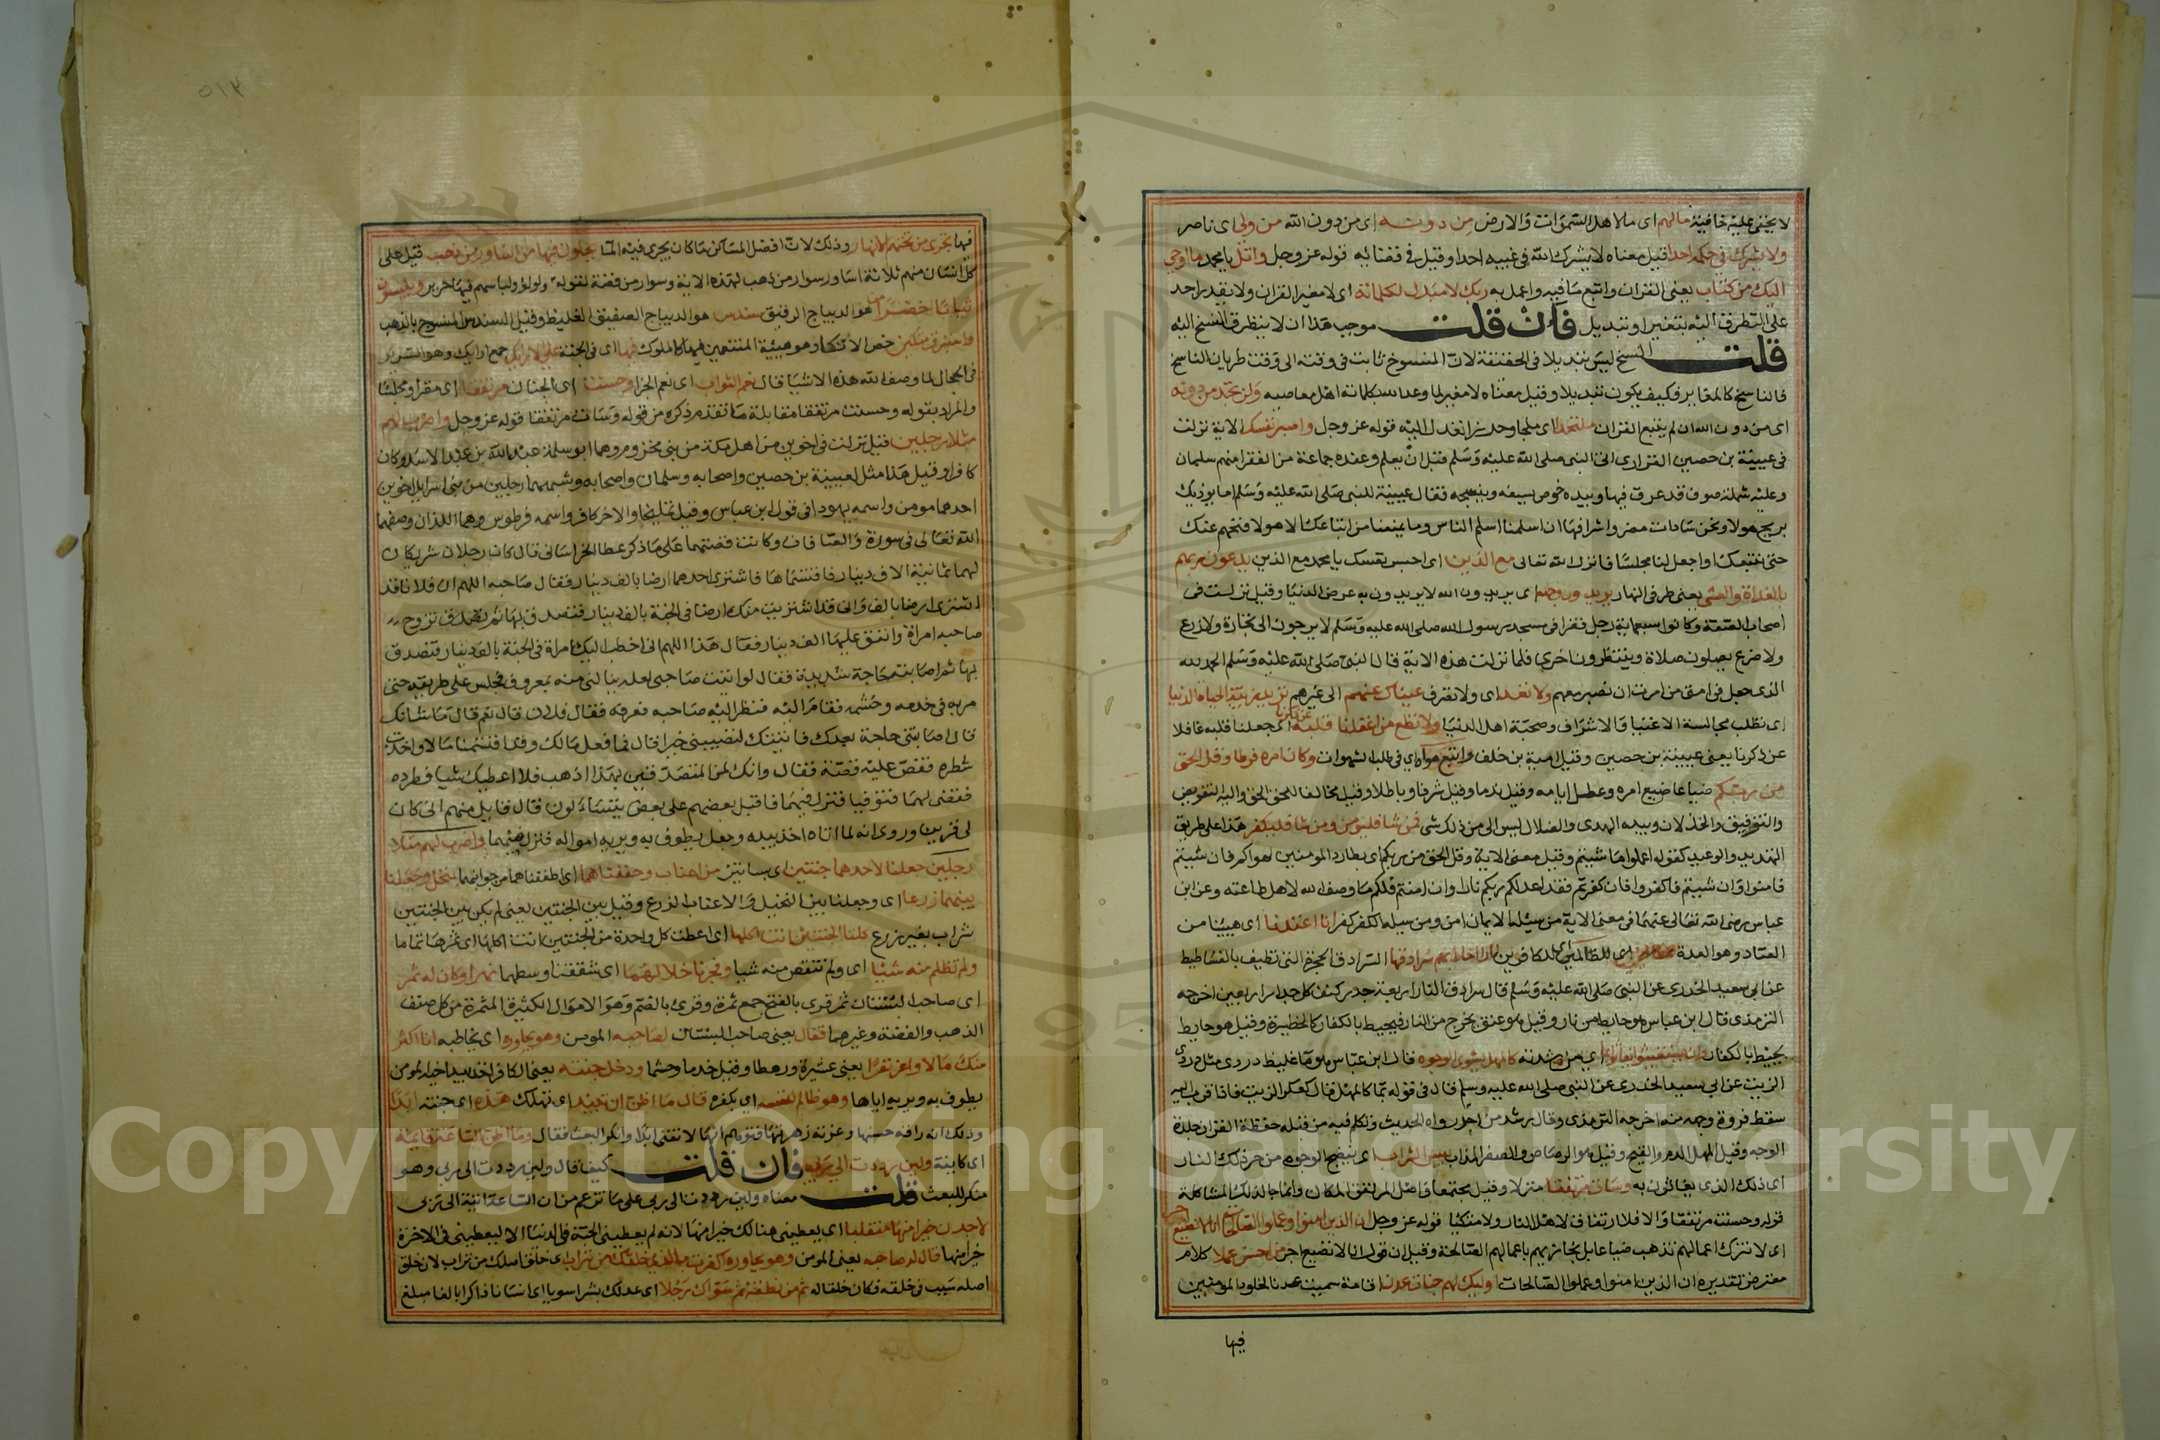 لا يخفى عليه خافية مالهم اى مالاهل السموات والارض من دونه اى من دون الله من ولي اى ناصر
ولا يشرك في حكمه احدا قيل معناه لا يشرك الله في غيبه احدا وقيل في قضائه قوله عز وجل واتل يا محمد ما اوحي
اليك من كتاب يعنى القران واتبع مافيه واعمل به ربك لا مبدل لكلماته اى لا مغير القران ولا يقدر احد
على التطرق اليه بتغير او تبديل فان قلت موجب هذا ان لا يتطرق النسخ اليه
قلت النسخ ليس تبديلا في الحقيقة لان المنسوخ ثابت في وقته الى وقت طريان الناسخ
فالناسخ كالمغاير فكيف يكون تبديلا وقيل معناه لا مغير لما وعد الله بكلماته اهل معاصيه ولن تجد من دونه
اى من دون الله ان لم يتبع القران ملتحدا اى ملجا وحرزا تعدل اليه قوله عز وجل واصبر نفسك الاية نزلت
في عيينة بن حصين الفزارى اتى النبي صلى الله عليه وسلم قبل ان يعلم وعنده جماعة من الفقرا منهم سلمان
وعليه شملة صوف قد عرق فيها وبيده خوص يسيفه وينسجه فقال عيينة للنبي صلى الله عليه وسلم اما يوذيك
بريح هولا ونحن سادات مضر واشرافها ان اسلمنا اسلم الناس وما يمنعنا من اتباعك الا هولا فنحهم عنك
حتى نتبعك او اجعل لنا مجلسا فانزل الله تعالى مع الذين اى احبس نفسك يا محمد مع الذين يدعون ربهم
بالغداة والعشي يعنى طرفى النهار يريدون وجهه اى يريدون الله لا يريدون به عرض الدنيا وقيل نزلت في
اصحاب الصفة وكانوا سبعماية رجل فقرا في مسجد رسول الله صلى الله عليه وسلم لا يرجون الى تجارة ولا زرع
ولا ضرع يصلون صلاة وينتظرون اخرى فلما نزلت هذه الاية قال النبي صلى الله عليه وسلم الحمد لله
الذى جعل في امتى من امرت ان نصبر معهم ولا تعد اى ولا تصرف عيناك عنهم الى غيرهم تريد زينة الحياة الدنيا
اى تطلب مجالسة الاغنيا والاشراف وصحبة اهل الدنيا ولا تطع من اغفلنا قلبه عن ذكرنا اى جعلنا قلبه غافلا
عن ذكرنا يعنى عيينة بن حصين وقيل امية بن خلف واتبع هواه اي في طلب الشهوات وكان امره فرطا وقل الحق
من ربكم ضياعا ضيع امره وعطل ايامه وقيل ندما وقيل شرفا وباطلا وقيل مخالفا للحق الحق واليه لتفويض
والتوفيق والخذلان وبيده الهدى والضلال ليس الى من ذلك شى فمن شا فليومن ومن شا فليكفر هذا على طريق
التهديد والوعيد كقوله اعملوا ما شيتم وقيل معنى الاية وقل الحق من ربكم اى بطارد المومنين لهواكم فان شيتم
فامنوا وان شيتم فاكفروا فان كفرتم فقد اعد لكم ربكم نارا وان امنتم فلكم ما وصف الله لاهل طاعته وعن ابن
عباس رضى الله تعالى عنهما في معنى الاية من يشا له الايمان امن ومن يشا له الكفر كفر انا اعتدنا اى هيينا من
العتاد وهو العدة للظالمين اى للكافرين نارا احاط بهم سرادقها السرادق الحجزة التى تطيف بالفساطيط
عن ابي سعيد الخدرى عن النبي صلى الله عليه وسلم قال سرادق النار اربعة جدر كثف كل جدار اربعين اخرجه
الترمذى قال ابن عباس هو حايط من نار وقيل هو عنق يخرج من النار فيحيط بالكفار كالحظيرة وقيل هو حايط
يحيط بالكفار وان يستغيثوا يغاثوا اى من شدته كالمهل يشوى الوجوه قال ابن عباس هو ما غليظ دردى مثل دردى
الزيت عن ابي سعيد الخدرى عن النبي صلى الله عليه وسلم قال في قوله بما كالمهل قال كعكر الزيت فاذا قرب اليه
سقط فروة وجهه منه اخرجه الترمذى وقال رشد من احد رواه الحديث وتكلم فيه من قبله حفظه الفزان جلدة
الوجه وقيل المهل الدم والقيح وقيل هو الرصاص والصفر المذاب بيس الشراب اى ينضج الوجوه من حر ذلك النار
اى ذلك الذى يغاثون به وسات مرتفقا منزلا وقيل مجتمعا واصل المرتفق المكان وانما جا لذلك المشاكلة
قوله وحسنت مرتفقا والا فلا ارتفاق لاهل النار ولا متكيا قوله عز وجل ان الذين امنوا وعملوا الصالحات انا لا نضيع اجر
اى لا نترك اعمالهم تذهب ضياعا بل نجازيهم باعمالهم الصالحة وقيل ان قوله انا لا نضيع اجر من احسن عملا كلام
معترض تقديره ان الذين امنوا وعملوا الصالحات اوليك لهم جنات عدن اقامة سميت عدنا لخلود المومنين
فيها
٥١٣
فيها تجرى من تحتهم الانهار وذلك لان افضل المساكن ما كان يجرى فيه الما يحلون فيها من اساور من ذهب قيل على
كل انسان منهم ثلاثة اساور سوار من ذهب لهذه الاية وسوار من فضة لقوله ولولو ولباسهم فيها حرير ويلبسون
ثيابا خضرا من هو الديباج الرقيق سندس هو الديباج الصفيق الغليظ وقيل السندس المنسوج بالذهب
واستبرق متكين خص الاتكا وهو هيئة المتنعمين فيها كالملوك فيها اى في الجنة على الارايك جمع اريكة وهو السرير
في الحجال لما وصف الله هذه الاشيا قال نعم الثواب اى نعم الجزا وحسنت اى الجنان مرتفقا اى مقرا ومجلسا
والمراد بقوله وحسنت مرتفقا مقابلة ما تقدم ذكره من قوله وساءت مرتفقا قوله عز وجل واضرب لهم
مثلا رجلين قيل نزلت في اخوين من اهل مكة من بنى مخزوم وهما ابو سلمة عبد الله بن عبد الاسد وكان
كافرا وقيل هذا مثل لعيينة بن حصين واصحابه وسلمان واصحابه وشبههما رجلين من بنى اسرايل اخوين
احدهما مومن واسمه يهودا في قول ابن عباس وقيل تمليخا والاخر كافر واسمه فرطوس وهما اللذان وصفهما
الله تعالى في سورة والصافات وكانت قصتهما على ما ذكر عطا الخراسانى قال كان رجلان شريكان
لهما ثمانية الاف دينار فاقتسماها فاشترى احدهما ارضا بالف دينار فقال صاحبه اللهم ان فلانا قد
اشترى ارضا بالف وانى قد اشتريت منك ارضا في الجنة بالف دينار فتصدق بها ثم تزوج
صاحبه امراة وانفق عليها الف دينار فقال هذا اللهم انى اخطب اليك امراة في الجنة بالف دينار فتصدق
بها ثم اصابته حاجة شديدة فقال لو اتيت صاحبى لعله ينالنى منه بمعروف فجلس على طريقه حتى
مر به في خدمه وحشمه فقام اليه فنظر اليه صاحبه فعرفه فقال فلان قال نعم قال ما شانك
قال اصابتنى حاجة بعدك فاتيتك لتصيبنى خيرا قال فما فعل مالك وقد اقتسمنا مالا واخذت
شطره فقص عليه قصته فقال وانك لمن المتصدقين بهذا اذهب فلا اعطيك شيا فطرده
فقضى لهما فتوفيا فنزل فيهما فاقبل بعضهم على بعض يتساءلون قال قايل منهم انى كان
لي قرين وروى انه لما اتاه اخذ بيده وجعل يطوف به ويريه امواله فنزل فيهما واضرب لهم مثلا
رجلين جعلنا لاحدهما جنتين اى بساتين من اعناب وحففناهما اى اطفناهما من جوانبهما بنخل وجعلنا
بينهما زرعا اى وجعلنا بين النخيل والاعناب الزرع وقيل بين الجنتين يعنى لم يكن بين الجنتين
خراب بغير زرع كلتا الجنتين اتت اكلها اى اعطت كل واحدة من الجنتين اكلها اى ثمرها تاما
ولم تظلم منه شيئا اى ولم تنقص منه شيا وفجرنا خلالهما اى شققنا وسطهما نهرا وكان له ثمر
اى صاحب البستان ثمر قرى بالفتح جمع ثمرة وقرئ بالضم وهو الاموال الكثيرة المثمرة من كل صنف
الذهب والفضة وغيرهما فقال يعنى صاحب البستان لصاحبه المومن وهو يحاوره اى يخاطبه انا اكثر
منك مالا واعز نفرا يعنى عشيرة ورهطا وقيل خدما وحشما ودخل جنته يعنى الكافر اخذ بيد اخيه المومن
يطوف به ويريه اياها وهو ظالم لنفسه اى بكفره قال ما اظن ان تبيد اى تهلك هذه اى جنته ابدا
وذلك انه راقه حسنها وغرته زهرتها فتوهم انها لا تفنى ابدا وانكر البعث فقال وما اظن الساعة قايمة
اى كاينة ولين رددت الى ربي فان قلت كيف قال ولين رددت الى ربى وهو
منكر للبعث قلت معناه ولين رددت الى ربى على ما تزعم من ان الساعة اتية الى ربى
لاجدن خيرا منها منقلبا اى يعطينى هنالك خيرا منها لانه لم يعطينى الجنة في الدنيا الا ليعطينى في الاخرة
خيرا منها قال له صاحبه يعنى المومن وهو يحاوره اكفرت بالذى خلقك من تراب اى خلق اصلك من تراب لان خلق
اصله سبب في خلقه فكان خلقا له ثم من نطفة ثم سواك رجلا اى عدلك بشرا سويا اى انسانا ذاكرا بالغا مبلغ
Copyright © King Saud University